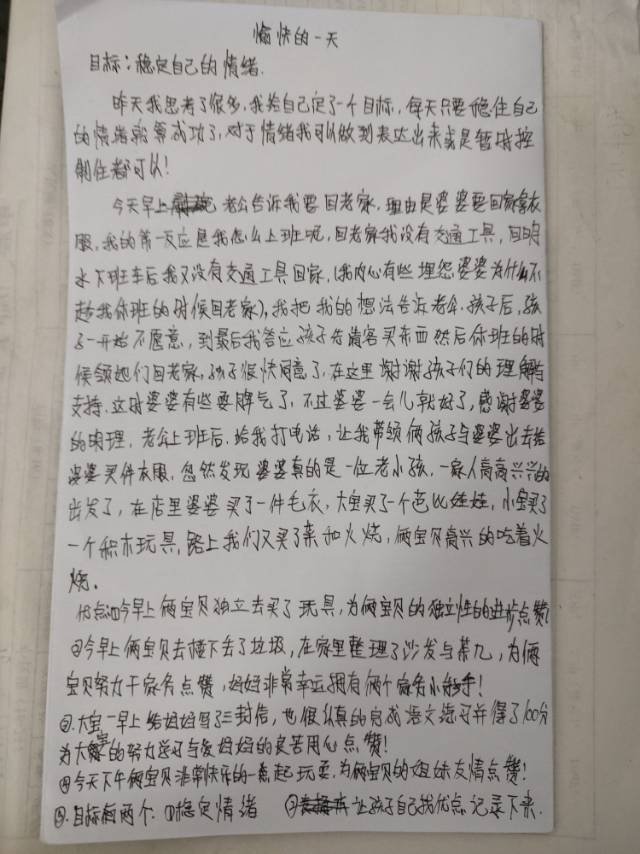 愉快的一天
目标：稳定自己的情绪.
昨天我思考了很多，我给自己定了一个目标，每天只要稳住自己
的情绪就算成功了，对于情绪我可以做到表达出来或是暂时控
制住都可以！
今天早上 老公告诉我要回老家，理由是婆婆要回家拿衣
服，我的第一反应是我怎么上班呢，回老家我没有交通工具，回明
水下班车后我又没有交通工具回家，(我内心有些埋怨婆婆为什么不
趁我休班的时候回老家)，我把我的想法告诉老公.孩子后，孩
子一开始不愿意，到最后我答应孩子去 买东西然后休班的时
候领她们回老家，孩子很快同意了，在这里谢谢孩子们的理解与
支持.这时婆婆有些耍脾气了，不过婆婆一会儿就好了，感谢婆婆
的明理，老公上班后.给我打电话，让我带领俩孩子与婆婆出去给
婆婆买件衣服，忽然发现婆婆真的是一位老小孩，一家人高高兴兴的
出发了，在店里婆婆买了一件毛衣，大宝买了一个芭比娃娃，小宝买了
一个积木玩具，路上我们又买了 和火烧，俩宝贝高兴的吃着火
烧.
优点:①今早上俩宝贝独立去买了玩具，为俩宝贝的独立性的进步点赞！
②今早上俩宝贝去楼下丢了垃圾，在家里整理了沙发与茶几，为俩
宝贝努力干家务点赞，妈妈非常幸运拥有俩个家务小能手！
③.大宝一早上给妈妈写了三封信，也很认真的完成语文练习并得了100分
为大宝的努力学习与爱妈妈的良苦用心点赞！
④今天下午俩宝贝非常快乐的一起玩耍，为俩宝贝的姐妹友情点赞！
⑤.目标有两个：①稳定情绪 ②让孩子自己找优点记录下来.